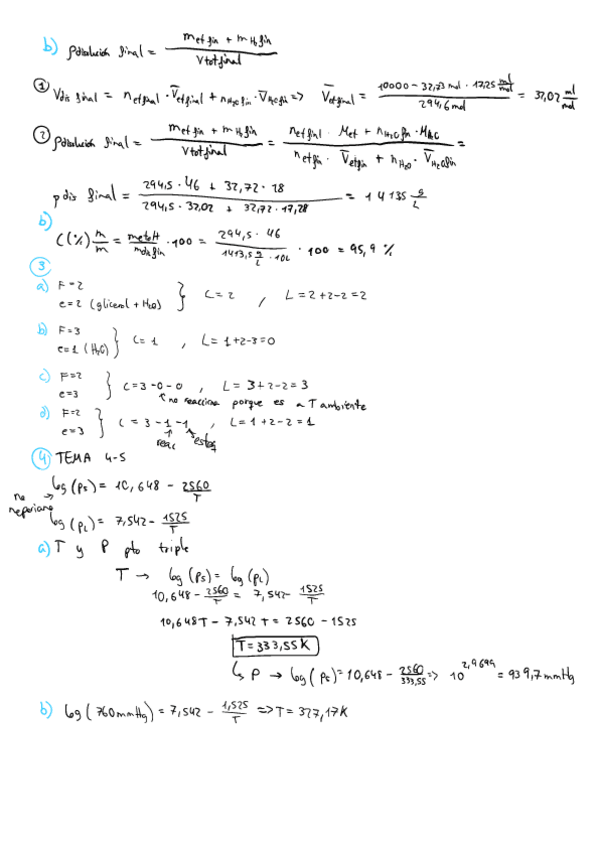 b) ρdisolución final = (met fin + mH₂O fin) / Vtot final
① Vdis final = netfinal · V̄etfinal + nH₂O fin · V̄H₂O fin => V̄etfinal = (10000 - 32,73 mol · 17,25 ml/mol) / 294,6 mol = 32,02 ml/mol
② ρdisolución final = (met fin + mH₂O fin) / Vtot final = (netfinal · Met + nH₂O fin · MH₂O) / (netfin · V̄etfin + nH₂O · V̄H₂O fin) =
ρ dis final = (294,5 · 46 + 32,72 · 18) / (294,5 · 32,02 + 32,72 · 17,28) = 14135 g/L
b)
C(%) m/m = metOH / mdis fin · 100 = (294,5 · 46) / (1413,5 g/L · 10L) · 100 = 95,9 %
③
a) F = 2
e = 2 (glicerol + H₂O) } C = 2 , L = 2+2-2 = 2
b) F = 3
e = 1 (H₂O) } C = 1 , L = 1+2-3 = 0
c) F = 2
e = 3 } C = 3 - 0 - 0 , L = 3+2-2 = 3
no reacciona porque es a T ambiente
d) F = 2
e = 3 } C = 3 - 1 - 1 , L = 1+2-2 = 1
reac esteq
④ TEMA 4-5
log (ps) = 10,648 - 2560/T
no neperiano
log (pL) = 7,542 - 1525/T
a) T y P pto triple
T → log (ps) = log (pL)
10,648 - 2560/T = 7,542 - 1525/T
10,648T - 7,542T = 2560 - 1525
T = 333,55K
↳ P → log (ps) = 10,648 - 2560/333,55 => 10^2,9699 = 939,7 mmHg
b) log (760mmHg) = 7,542 - 1,525/T => T = 327,17K